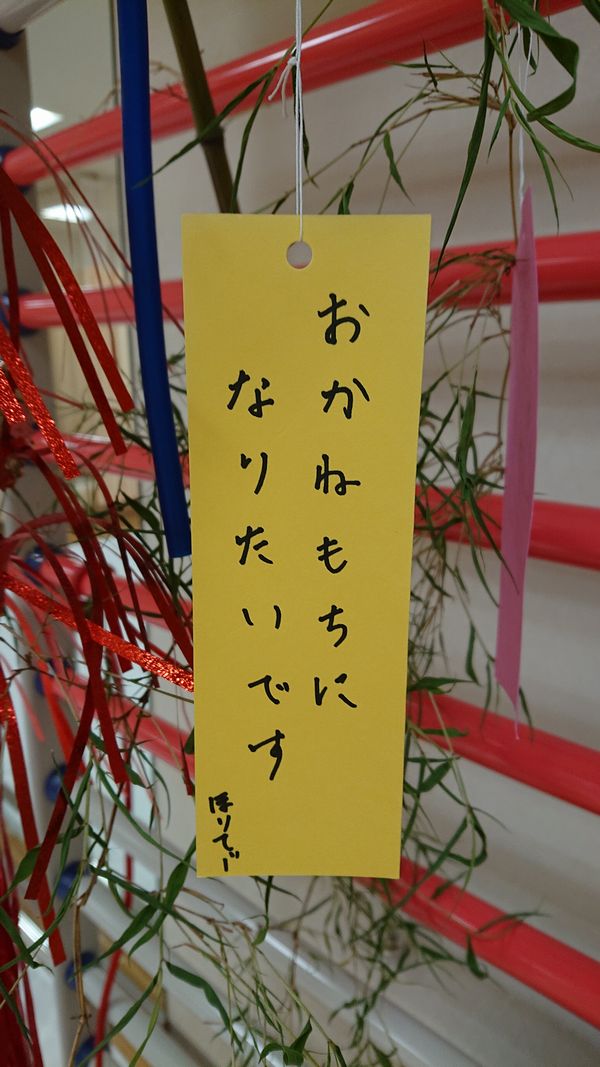 おかねもちに
なりたいです
ほりでー